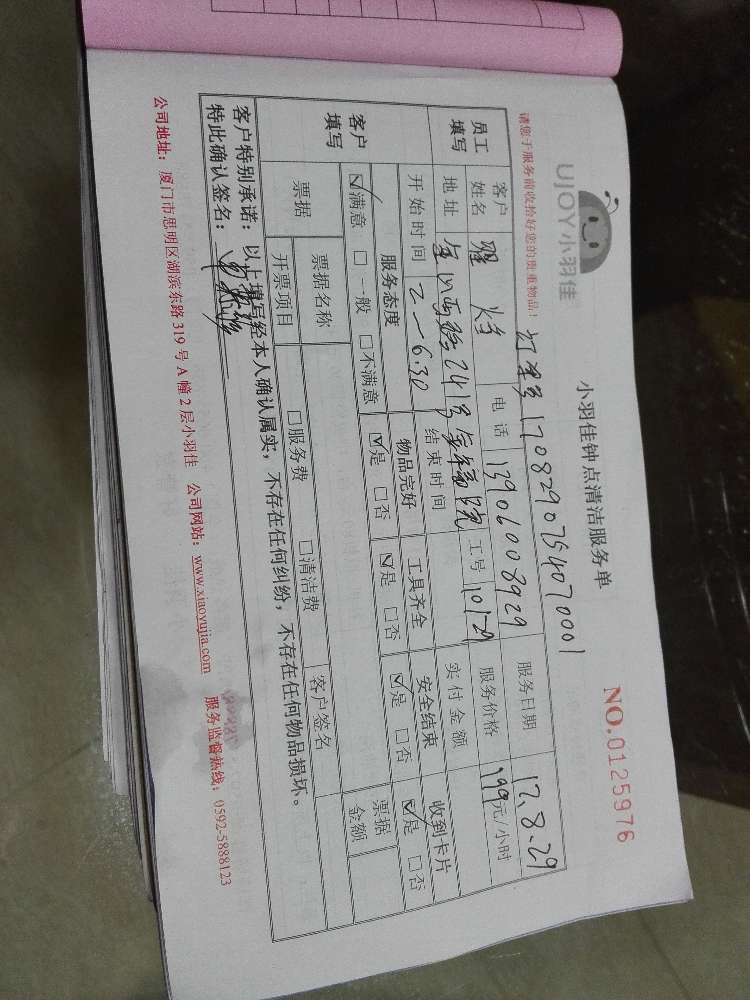 UJOY小羽佳
小羽佳钟点清洁服务单
NO.0125976
请您于服务前收拾好您的贵重物品！ 订单号1708290754070001
员工填写 客户姓名 电话 13906008929 服务日期 17.8.29
地址 241号 工号 10129 服务价格 199元/小时
开始时间 2—6.30 结束时间 实付金额
客户填写 服务态度 物品完好 工具齐全 安全结束 收到卡片
☑满意 □一般 □不满意 ☑是 □否 ☑是 □否 ☑是 □否 ☑是 □否
票据 票据名称 □服务费 □清洁费 客户签名 票据金额
开票项目
客户特别承诺：以上填写经本人确认属实，不存在任何纠纷，不存在任何物品损坏。
特此确认签名：
公司地址：厦门市思明区湖滨东路319号A幢2层小羽佳 公司网站：www.xiaoyujia.com 服务监督热线：0592-5888123